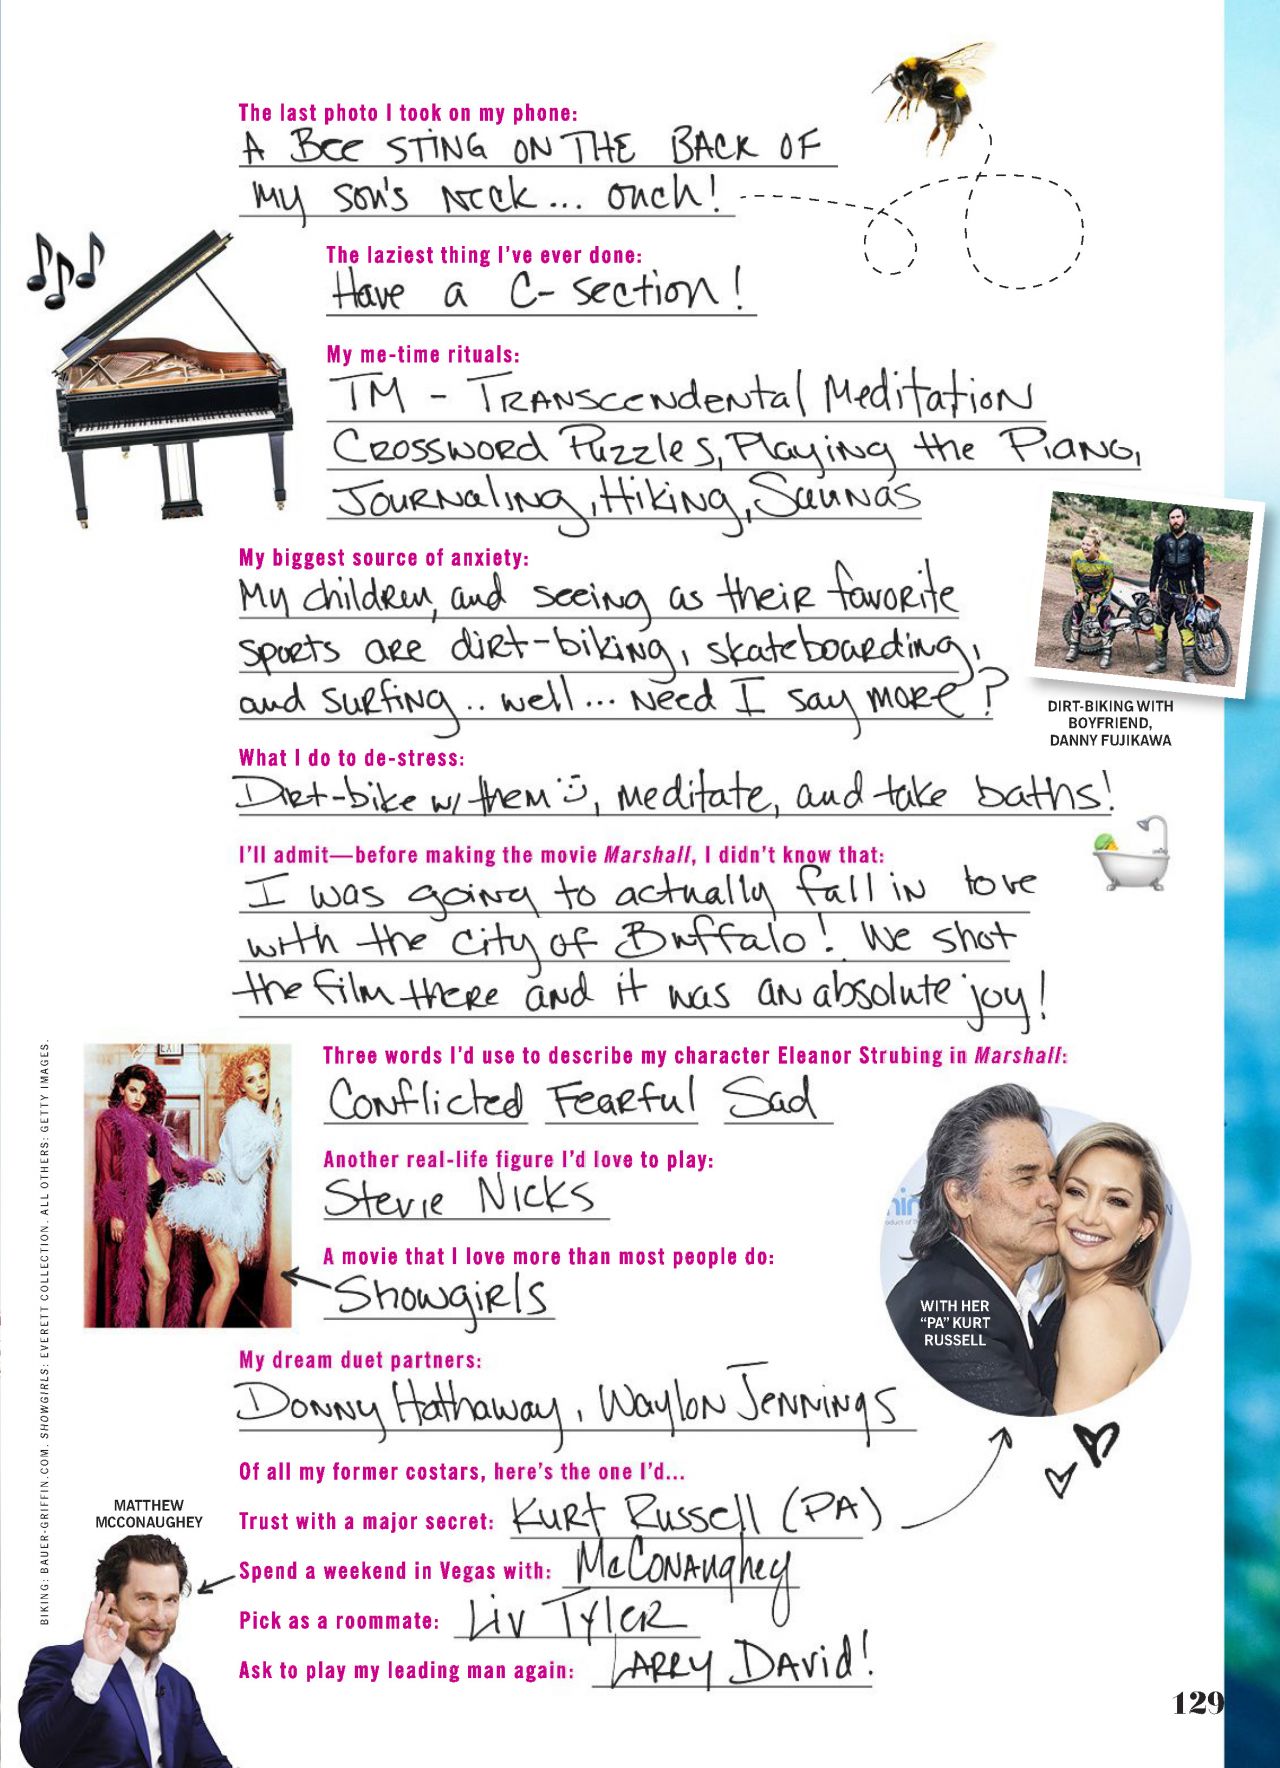 The last photo I took on my phone:
A Bee STING ON THE BACK OF
My SON'S Neck... ouch!
The laziest thing I've ever done:
Have a C-section!
My me-time rituals:
TM - TRANSceNdeNtal MeditatioN
CROSSWORD Puzzles, Playing the PIANO,
JOURNaliNg, HikiNg, SauNas
My biggest source of anxiety:
My childReN, and seeing as theiR favoRite
spoRts aRe diRt-bikiNg, skateboaRdiNg,
and suRfiNg.. well... Need I say moRe?
DIRT-BIKING WITH
BOYFRIEND,
DANNY FUJIKAWA
What I do to de-stress:
DiRt-bike w/ theM :), Meditate, and take baths!
I'll admit—before making the movie Marshall, I didn't know that:
I was goiNg to actually fall iN love
with the city of Buffalo! We shot
the filM theRe and it was aN absolute joy!
Three words I'd use to describe my character Eleanor Strubing in Marshall:
CoNflicted FeaRful Sad
Another real-life figure I'd love to play:
Stevie NICKS
A movie that I love more than most people do:
ShowgiRls
WITH HER
"PA" KURT
RUSSELL
My dream duet partners:
DoNNy Hathaway, WayloN JeNNiNgs
Of all my former costars, here's the one I'd...
Trust with a major secret: KuRt Russell (PA)
MATTHEW
MCCONAUGHEY
Spend a weekend in Vegas with: McCoNAughey
Pick as a roommate: Liv TyleR
Ask to play my leading man again: LARRY DAvid!
BIKING: BAUER-GRIFFIN.COM. SHOWGIRLS: EVERETT COLLECTION. ALL OTHERS: GETTY IMAGES.
129